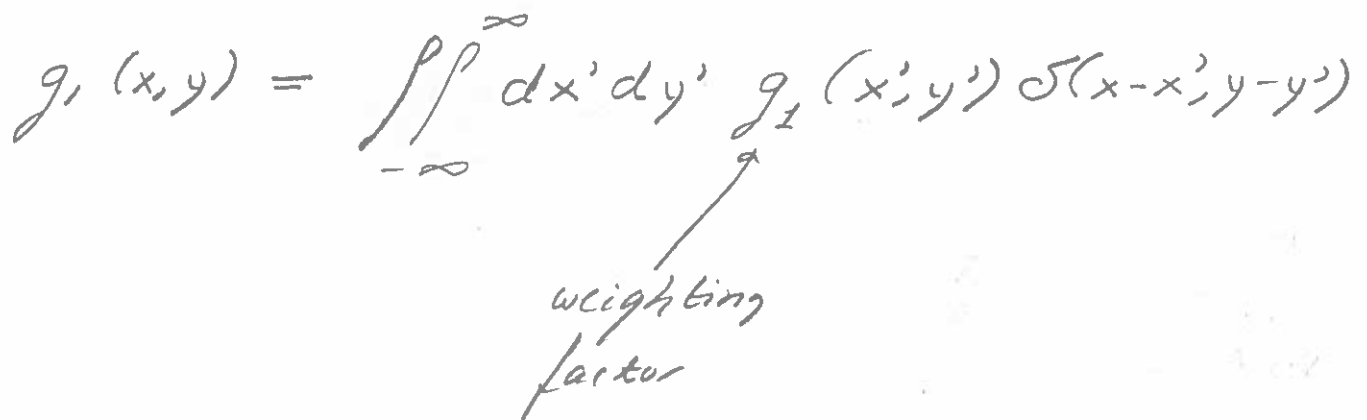 g₁ (x, y) = ∬_{-∞}^{∞} dx' dy' g₁ (x', y') δ(x-x', y-y')
weighting
factor